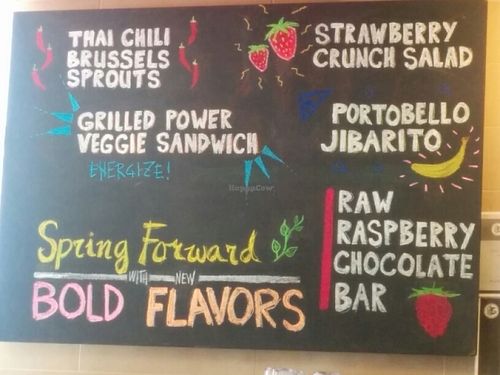 THAI CHILI
BRUSSELS
SPROUTS
STRAWBERRY
CRUNCH SALAD
GRILLED POWER
VEGGIE SANDWICH
ENERGIZE!
PORTOBELLO
JIBARITO
RAW
RASPBERRY
CHOCOLATE
BAR
Spring Forward
WITH NEW
BOLD FLAVORS
HappyCow